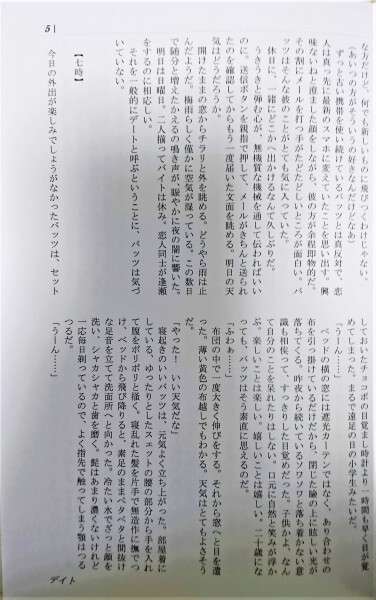 5
な方だけど、何でも新しいものに飛びつくわけじゃない。
（あいつの方がそういうの好きなんだけどなあ）
ずっと古い携帯を使い続けているバッツとは真反対で、恋
人は真っ先に最新のスマホに変えていたことを思い出す。興
味ないねと澄ました顔をしながら、彼の方が余程即物的だ。
その割にメールを打つ手がたどたどしいところが面白い。バ
ッツはそんな彼のことがとても気に入っていた。
休日に、一緒にどこかへ出かけるなんて久しぶりだ。
うきうきと弾む心が、無機質な機械を通して伝わればいい
のに。送信ボタンを親指で押して、メールがきちんと送られ
たのを確認してからもう一度届いた文面を眺める。明日の天
気はどうだろうか。
開けたままの窓からチラリと外を眺める。どうやら雨は止
んだようだ。梅雨らしく僅かに空気が湿っている。この数日
で随分と増えたかえるの鳴き声が、賑やかに夜の闇に響いた。
明日は日曜日。二人揃ってバイトは休み。恋人同士が逢瀬
をするのに相応しい。
それを一般的にデートと呼ぶということに、バッツは気づ
いていない。
【七時】
今日の外出が楽しみでしょうがなかったバッツは、セット
しておいたチョコボの目覚まし時計より一時間も早く目が覚
めてしまった。まるで遠足の日の小学生みたいだ。
「うーん……」
ベッドの横の窓には遮光カーテンではなく、あり合わせの
布を引っ掛けているだけだから、閉じた瞼の上に眩しい光が
落ちてくる。昨夜から続いているソワソワと落ち着かない意
識も相俟って、すっきりした目覚めだった。子供かよ、なん
て自分のことを呆れたりはしない。口元に自然と笑みが浮か
ぶ。楽しいことは楽しい。嬉しいことは嬉しい。二十歳にな
っても、バッツはそう素直に思えるのだ。
「ふわぁ……」
布団の中で一度大きく伸びをする。それから窓へと目を遣
った。薄い黄色の布越しでもわかる。天気はとてもよさそう
だ。
「やった！　いい天気だな」
寝起きのいいバッツは、元気よく立ち上がった。部屋着に
している、ゆったりとしたスェットの腰の部分から手を入れ
て腹をポリポリと掻く。寝乱れた髪を片手で無造作に撫でつ
け、ベッドから飛び降りると、素足のままペタペタと間抜け
な足音を立てて洗面所へと向かった。冷たい水でざっと顔を
洗い、シャカシャカと歯を磨く。髭はあまり濃くないけれど
一応毎日剃っているので、よく指先で触ってしまう顎はつる
つるだ。
「うーん……」
デイト